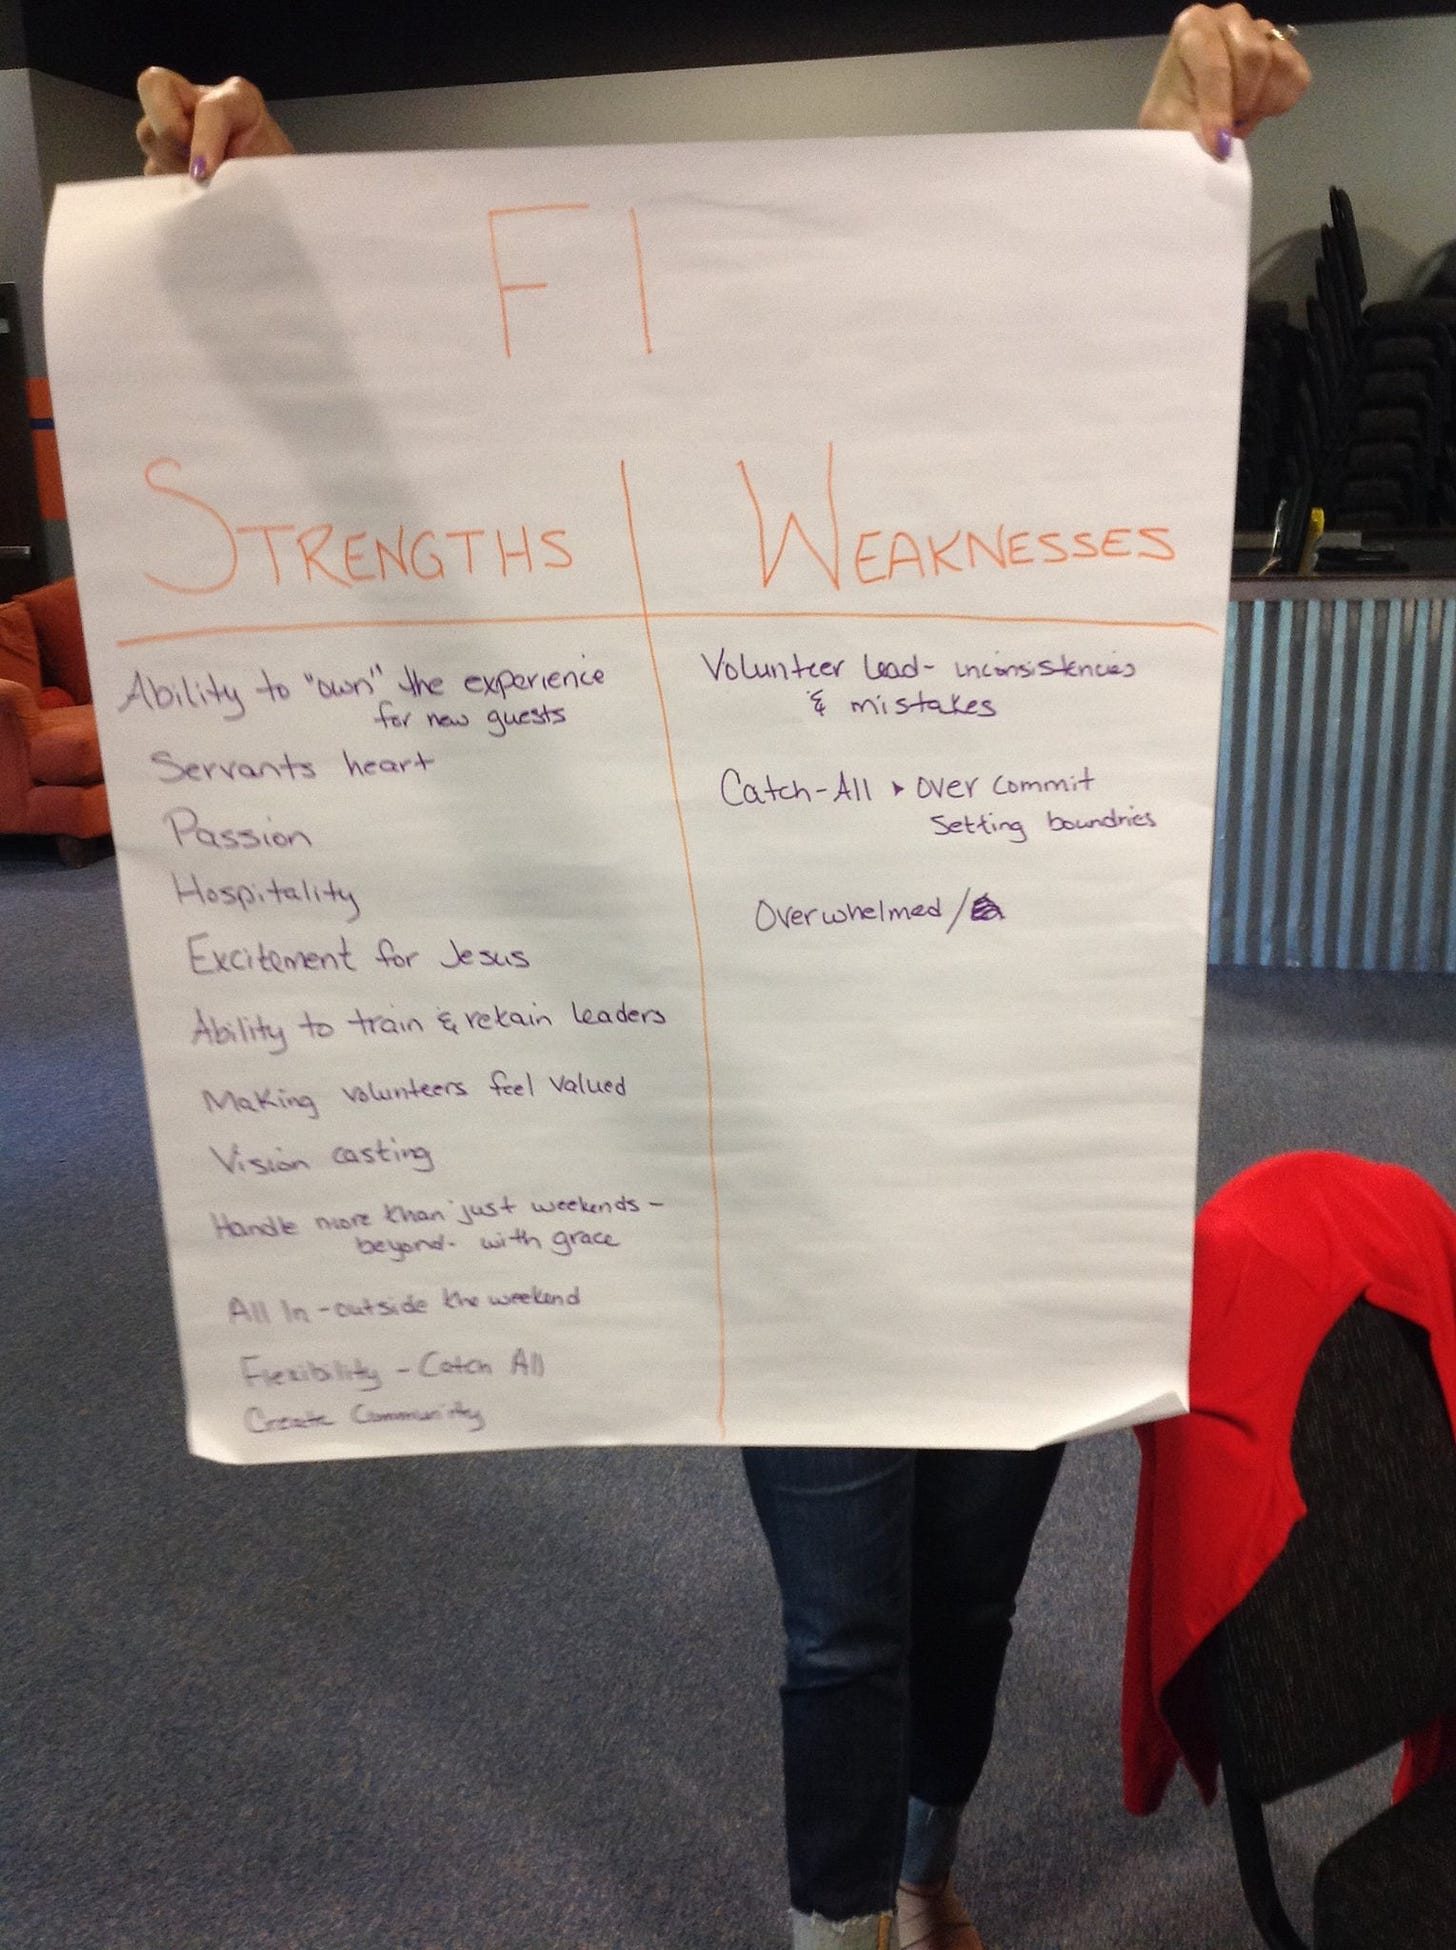 FI
STRENGTHS
Ability to "own" the experience
for new guests
Servants heart
Passion
Hospitality
Excitement for Jesus
Ability to train & retain leaders
Making volunteers feel valued
Vision casting
Handle more than just weekends -
beyond - with grace
All In - outside the weekend
Flexibility - Catch All
Create Community
WEAKNESSES
Volunteer lead - inconsistencies
& mistakes
Catch-All ▸ Over commit
Setting boundries
Overwhelmed /